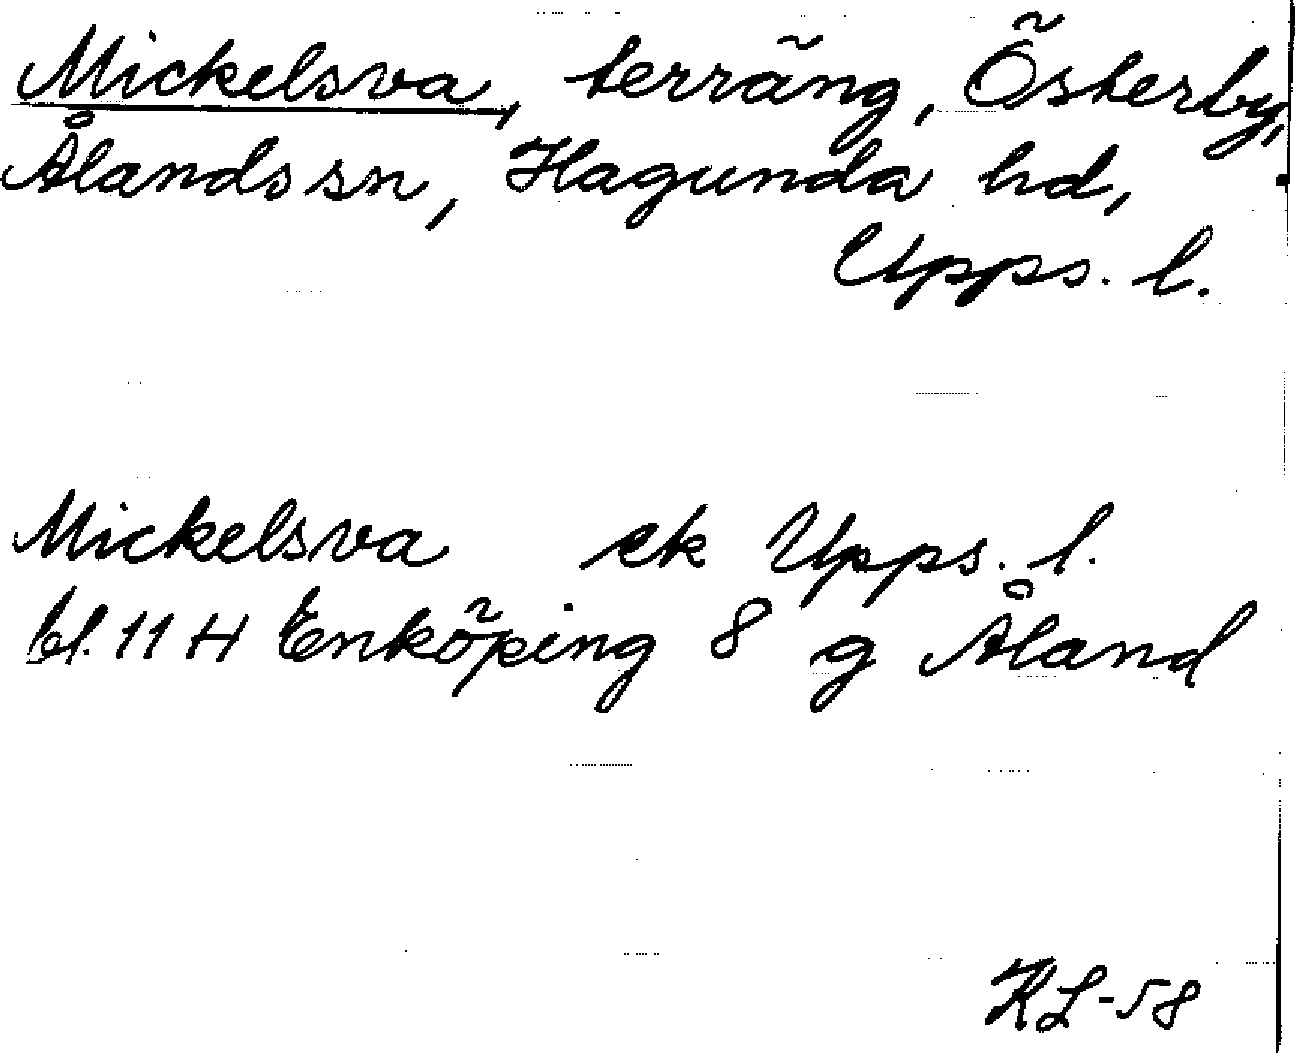 Mickelsva, terräng, Österby,
Ålands sn, Hagunda hd,
Upps. l.
Mickelsva ek Upps. l.
bl. 11 H Enköping 8 g Åland
KL-58